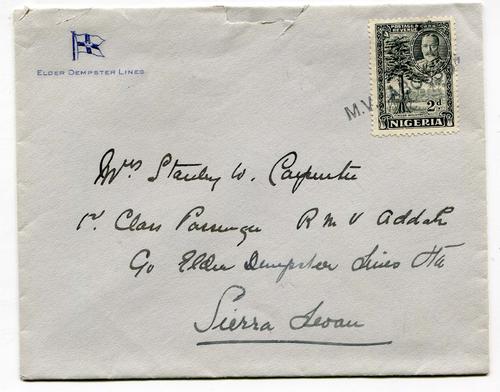 ELDER DEMPSTER LINES
POSTAGE & REVENUE
M.V.
2d
NIGERIA
Mrs Stanley W. Carpenter
1st Class Passenger R M V Addah
C/o Elder Dempster Lines Ltd
Sierra Leone